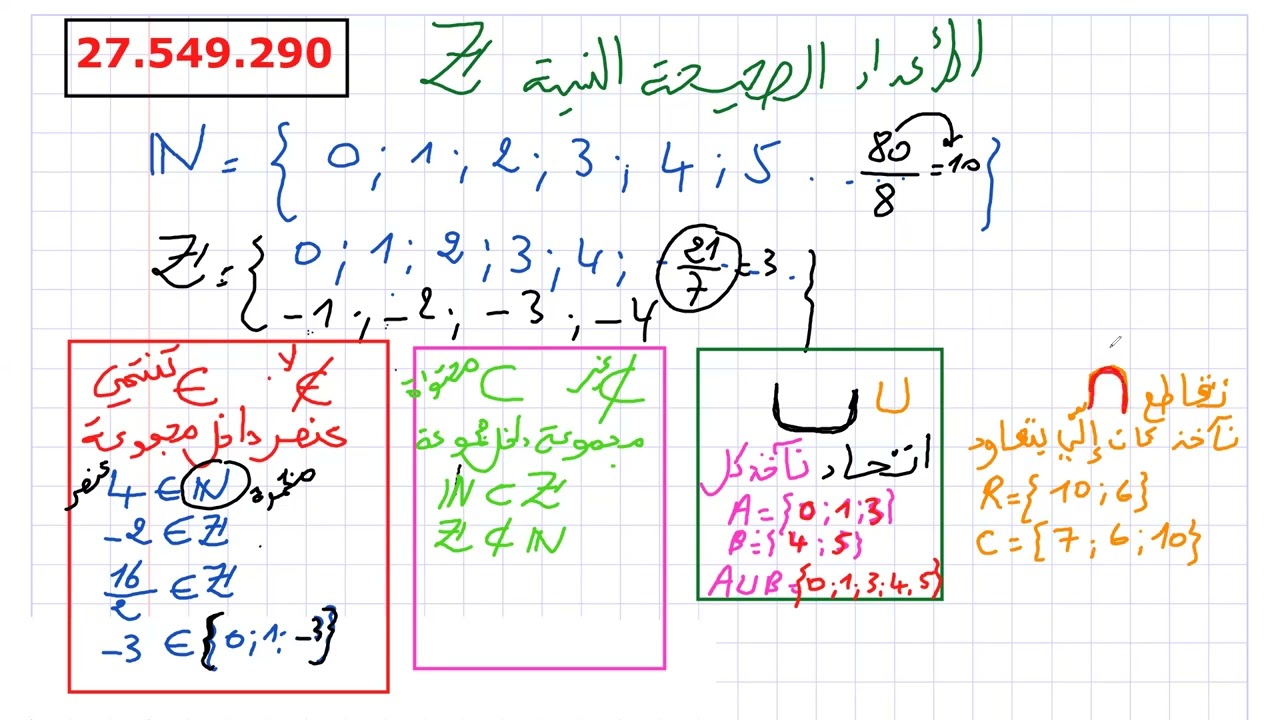 27.549.290
الأعداد الصحيحة النسبية ℤ
ℕ = { 0 ; 1 ; 2 ; 3 ; 4 ; 5 . . . 80/8 = 10 }
ℤ = { 0 ; 1 ; 2 ; 3 ; 4 ; 21/7 = 3 .
-1 ; -2 ; -3 ; -4 }
تنتمي ∈ لا ∉
عنصر داخل مجموعة
عنصر 4 ∈ ℕ
-2 ∈ ℤ
16/2 ∈ ℤ
-3 ∈ {0 ; 1 ; -3}
محتواة ⊂ غير ⊄
مجموعة داخل مجموعة
ℕ ⊂ ℤ
ℤ ⊄ ℕ
∪ ∪
اتحاد نأخذ كل
A = {0 ; 1 ; 3}
B = {4 ; 5}
A∪B = {0 ; 1 ; 3 ; 4 , 5}
تقاطع ∩
R = {10 ; 6}
C = {7 ; 6 ; 10}